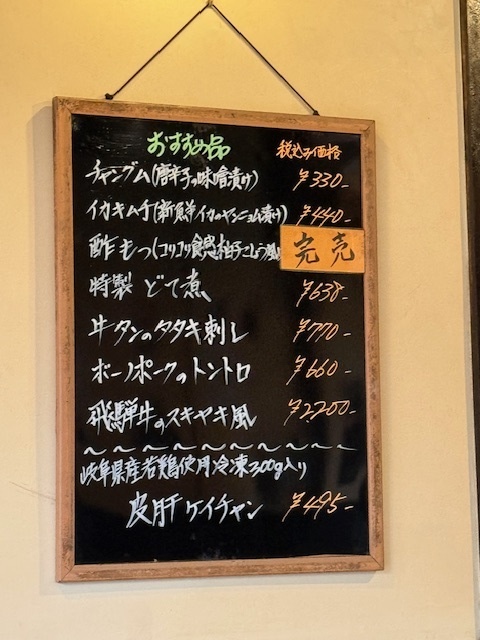 おすすめ品 税込み価格
チャンプム(唐辛子の味噌漬け) ¥330-
イカキムチ(新鮮イカのヤンニョム漬け) ¥440-
酢もつ(コリコリ食感柚子こしょう風味 完売
特製 どて煮 ¥638-
牛タンのタタキ刺し ¥770-
ボーノポークのトントロ ¥660-
飛騨牛のスキヤキ風 ¥2,200-
〜〜〜〜〜〜〜〜〜〜
岐阜県産若鶏使用冷凍300g入り
皮肝ケイチャン ¥495-